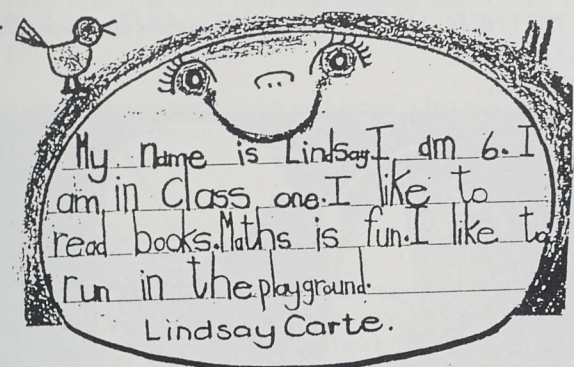 My name is Lindsay I am 6. I
am in Class one. I like to
read books. Maths is fun. I like to
run in the playground.
Lindsay Carte.